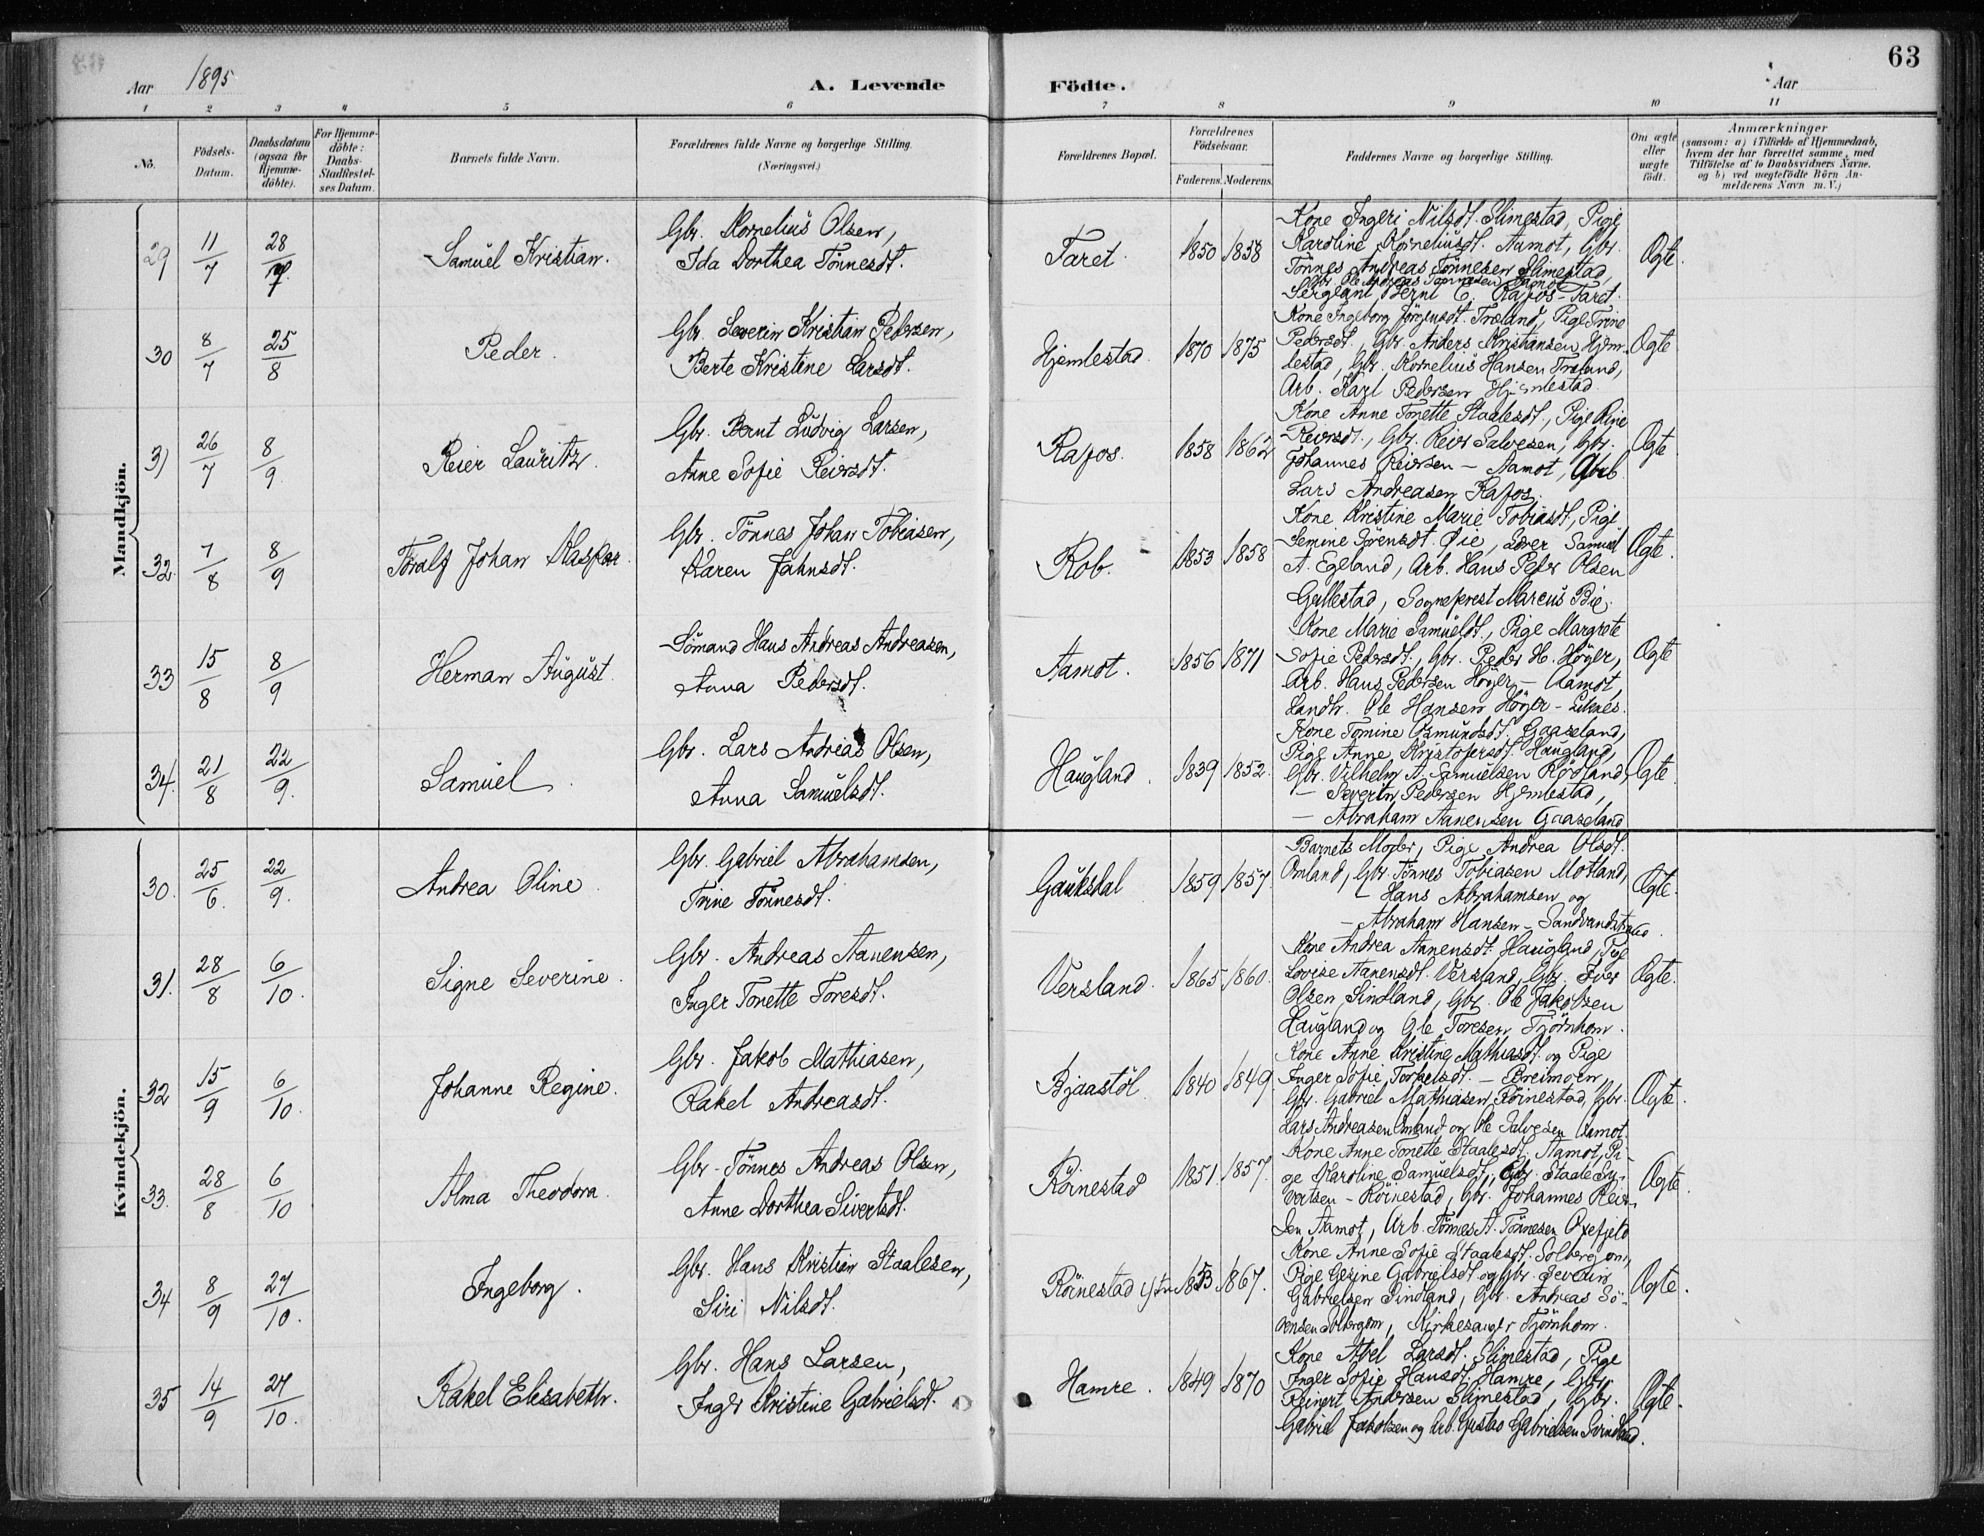 63
Aar 1895
A. Levende Födte.
Aar
1 2 3 4 5 6 7 8 9 10 11
No.
Födsels-Datum.
Daabsdatum (ogsaa for Hjemme-döbte).
For Hjemme-döbte: Daabs-Stadfæstel-ses Datum.
Barnets fulde Navn.
Forældrenes fulde Navne og borgerlige Stilling.
(Næringsvei.)
Forældrenes Bopæl.
Forældrenes Födselsaar.
Faderens. Moderens.
Faddernes Navne og borgerlige Stilling.
Om ægte eller uægte födt.
Anmærkninger
(saasom: a) i Tilfælde af Hjemmedaab,
hvem der har forrettet samme, med
Tilföielse af to Daabsvidners Navne.
og b) ved uægtefödte Börn An-
melderens Navn m. V.)
Mandkjön.
29 11/7 28/7 Samuel Kristian.
Gbr. Kornelius Olsen,
Ida Dorthea Tönnesdt.
Faret. 1850 1858
Kone Ingeri Nilsdt. Slimestad, Pige
Karoline Korneliusdt. Aamot, Gbr.
Tönnes Andreas Tönnesen Slimestad,
Gbr. Ole Andreas Tönnesen Aamot
Sergeant Bernt C. Rafos-Faret.
Ægte.
30 8/7 25/8 Peder.
Gbr. Severin Kristian Pedersen,
Berte Kristine Larsdt.
Hjemlestad. 1870 1875
Kone Ingeborg Jörgensdt. Træland, Pige Trine
Pedersdt., Gbr. Anders Kristiansen Hjem-
lestad, Gbr. Kornelius Hansen Træland,
Arb. Karl Pedersen Hjemlestad.
Ægte
31 26/7 8/9. Reier Lauritz.
Gbr. Bernt Ludvig Larsen,
Anne Sofie Reiersdt.
Rafos. 1858 1862
Kone Anne Tonette Staalesdt., Pige Rine
Reiersdt., Gbr. Reier Salvesen, Gbr.
Johannes Reiersen - Aamot, Arb.
Lars Andreasen Rafos.
Ægte
32. 7/8 8/9 Toralf Johan Kaspar.
Gbr. Tönnes Johan Tobiasen,
Karen Jahnsdt.
Rob. 1853 1858
Kone Kristine Marie Tobiasdt., Pige
Semine Sörensdt. Öie, Lærer Samuel
A. Egeland, Arb. Hans Peder Olsen
Gullestad, Sogneprest Marcus Bie.
Ægte.
33 15/8 8/9 Herman August.
Sömand Hans Andreas Andreasen,
Anna Pedersdt.
Aamot. 1856 1871
Kone Marie Samueldt., Pige Margrete
Sofie Pedersdt., Gbr. Peder H. Höyer,
Arb. Hans Pedersen Höyer - Aamot,
Landh. Ole Hansen Höyer - Liknes.
Ægte
34. 21/8 22/9. Samuel.
Gbr. Lars Andreas Olsen,
Anna Samuelsdt.
Haugland. 1839 1852.
Kone Tomine Osmundsdt. Gaaseland,
Pige Anne Kristofersdt. Haugland,
Gbr. Vilhelm A. Samuelsen Rödland,
- Severin Pedersen Hjemlestad,
- Abraham Aanensen Gaaseland
Ægte.
Kvindekjön.
30. 25/6. 22/9. Andrea Oline.
Gbr. Gabriel Abrahamsen,
Trine Tönnesdt.
Gauksdal 1859 1857.
Barnets Moder, Pige Andrea Olsdt.
Omland, Gbr. Tönnes Tobiasen Motland,
- Hans Abrahamsen og
- Abraham Hansen - Sandvandstrand.
Ægte.
31. 28/8 6/10. Signe Severine.
Gbr. Andreas Aanensen,
Inger Tonette Toresdt.
Versland. 1865 1860.
Kone Andrea Aanensdt. Haugland, Pige
Lovise Aanensdt. Versland, Gbr. Iver
Olsen Sindland, Gbr. Ole Jakobsen
Haugland og Ole Toresen Tjörnhom.
Ægte.
32 15/9 6/10. Johanne Regine.
Gbr. Jakob Mathiasen,
Rakel Andreasdt.
Bjaastöl 1840 1849
Kone Anne Kristine Mathiasdt. og Pige
Inger Sofie Torkelsdt. - Breimoen,
Gbr. Gabriel Mathiasen, Röinestad, Gbr.
Lars Andreasen Omland og Ole Salvesen Aamot.
Ægte.
33. 28/8 6/10 Alma Theodora.
Gbr. Tönnes Andreas Olsen,
Anne Dorthea Sivertsdt.
Röinestad 1851. 1857.
Kone Anne Tonette Staalesdt. Aamot, Pi-
ge Karoline Samuelsdt., Gbr. Staale Sy-
vertsen - Röinestad, Gbr. Johannes Reier-
sen Aamot, Arb. Tönnes A. Tönnesen Oxefjeld
Ægte.
34 8/9 27/10. Ingeborg.
Gbr. Hans Kristian Staalesen,
Siri Nilsdt.
Röinestad ytre 1853 1867.
Kone Anne Sofie Staalesdt. Solbergom,
Pige Gesine Gabrielsdt og Gbr. Severin
Gabrielsen Sindland, Gbr. Andreas Sö-
rensen Solbergom, Kirkesanger Tjörnhom.
Ægte.
35 14/9 27/10. Rakel Elisabeth.
Gbr. Hans Larsen,
Inger Kristine Gabrielsdt.
Hamre. 1849 1870
Kone Abel Larsdt. Slimestad, Pige
Inger Sofie Hansdt. Hamre, Gbr.
Reinert Andersen Slimestad, Gbr.
Gabriel Jakobsen og Arb. Gustav Gabrielsen Svindland.
Ægte.